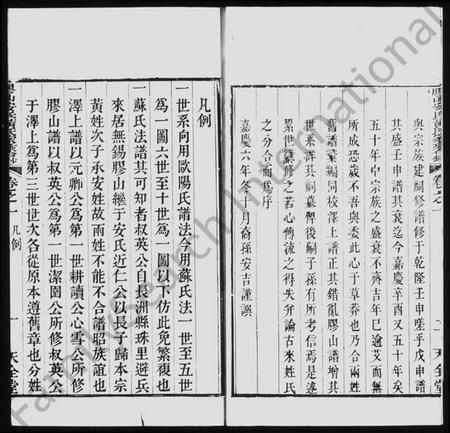 與宗族建祠修譜修于乾隆壬申
其盛壬申譜其衰迄今嘉慶辛酉又五十年矣
五十年中宗族之盛衰不齊吉年已逾艾而無
所成恐歲不吾與委此心于草莽也乃合兩姓
舊譜彙編同校澤上譜正其錯亂膠山譜增其
世系詳其祠墓俾後嗣子孫有所考信焉是述
累世纂修之若心傳流之得失弁論古來姓氏
之分合而爲序
嘉慶六年冬十月裔孫安吉謹譔
卷之一
天全堂
凡例
一世系向用歐陽氏譜法今用蘇氏法一世至五世
爲一圖六世至十世爲一圖以下仿此免繁複也
一蘇氏法譜其可知者叔英公自長洲縣珠里避兵
來居無錫膠山繼于安氏近仁公以長子歸本宗
黃姓次子承安姓故兩姓不能不合譜昭族誼也
一澤上譜以元卿公爲第一世耕讀公心雪公所修
膠山譜以叔英公爲第一世潔園公所修叔英公
于澤上爲第三世世次各從原本遵舊章也分姓
卷之一
凡例
一
天全堂
Family Search International